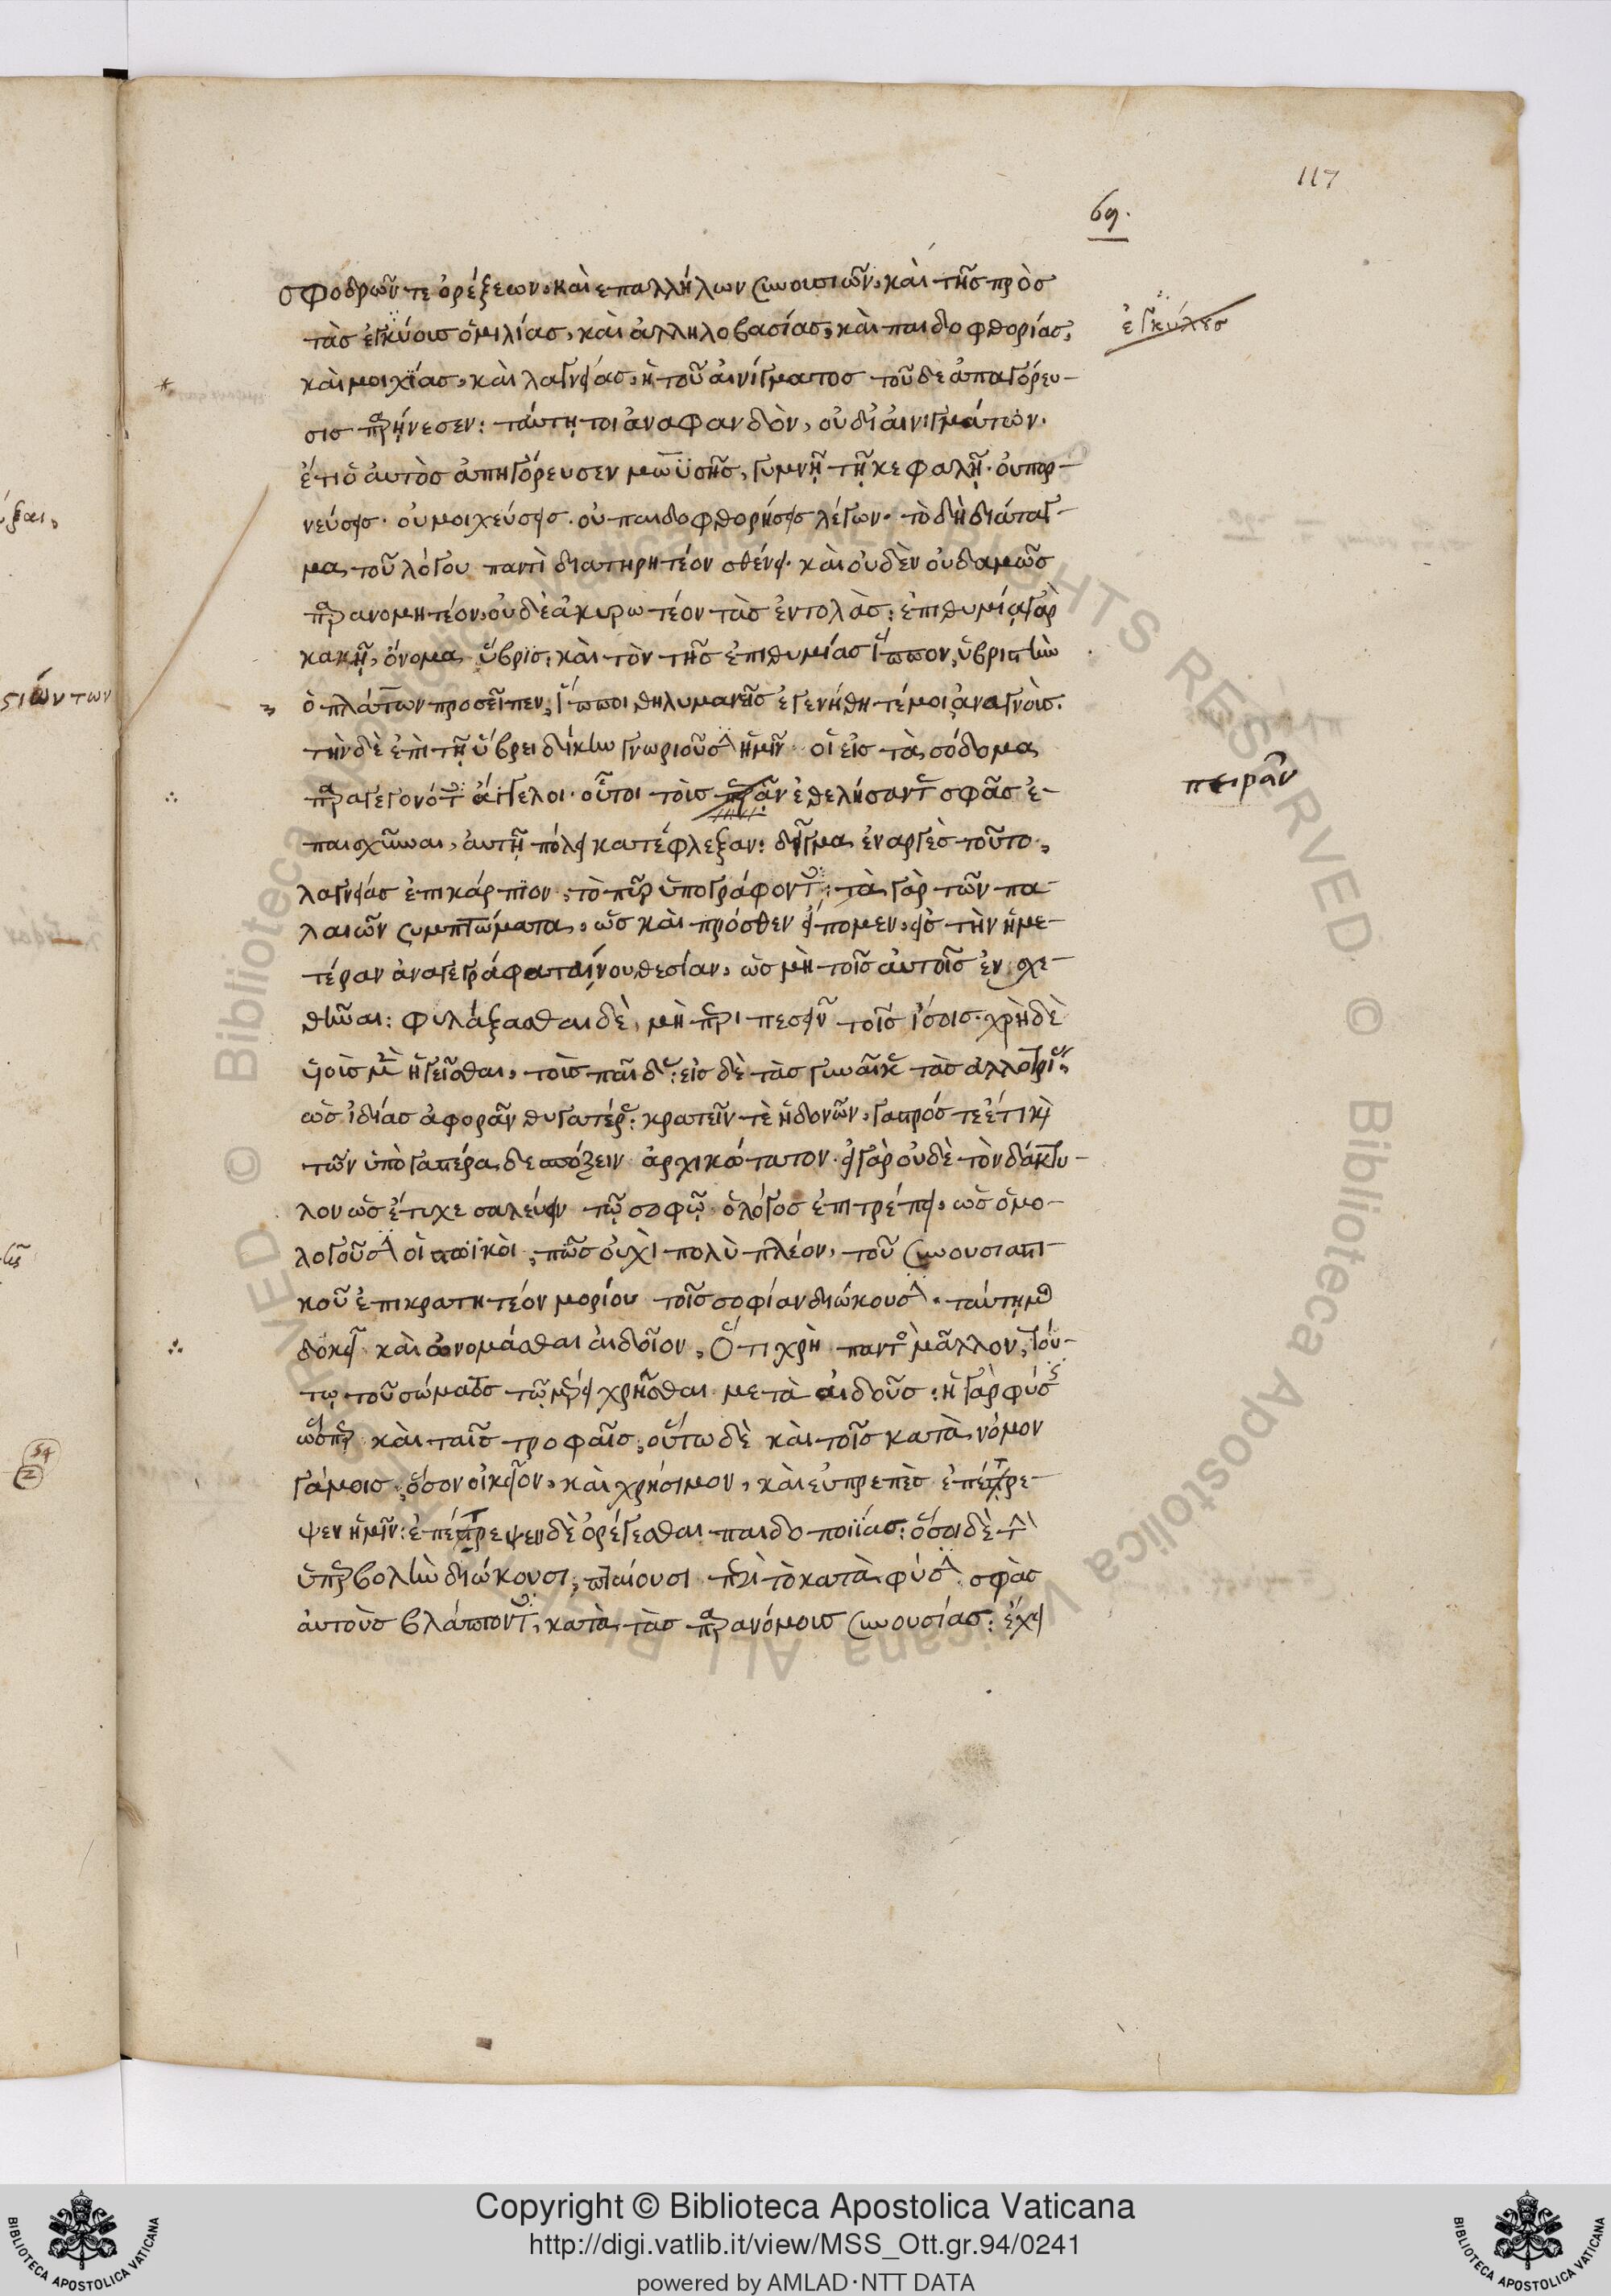 117
69.
σφοδρῶν τε ὀρέξεων, καὶ επαλλήλων συνουσιῶν, καὶ τῆς πρὸς
τὰς ἐγκύους ὁμιλίας, καὶ ἀλληλοβασίας, καὶ παιδοφθορίας,
ἐγκύλους
καὶ μοιχίας, καὶ λαγνείας, ἡ τοῦ αἰνίγματος τοῦδε ἀπαγόρευ-
σις παρήνεσεν: ταύτῃ τοι ἀναφανδὸν, οὐ δι αἰνιγμάτων.
έτι ὁ αὐτὸς ἀπηγόρευσεν μωϋσῆς, γυμνῇ τῇ κεφαλῇ. οὐ πορ-
νεύσεις. οὐ μοιχεύσεις. οὐ παιδοφθορήσεις λέγων. τὸ δὴ διάταγ-
μα τοῦ λόγου παντὶ διατηρητέον σθένει. καὶ οὐδὲν οὐδαμῶς
παρανομητέον, οὐδὲ ἀκυρωτέον τὰς ἐντολὰς: ἐπιθυμίᾳ γὰρ
κακῇ, ὄνομα ὕβρις: καὶ τὸν τῆς ἐπιθυμίας ἵππον, ὑβριστὴν
ὁ πλάτων προσεῖπεν, ἵπποι θηλυμανεῖς ἐγενήθητέ μοι ἀναγνοὺς.
τὴν δὲ ἐπὶ τῇ ὕβρει δίκην γνωριοῦσιν ἡμῖν οἱ εἰς τὰ σόδομα
παραγεγονότες ἄγγελοι. οὗτοι τοὺς πειρᾶν ἐθελήσαντας σφᾶς ἐ-
πειρᾶν
παισχῦναι, αὐτῇ πόλει κατέφλεξαν: δεῖγμα ἐναργὲς τοῦτο,
λαγνείας ἐπικάρπιον, τὸ πῦρ ὑπογράφοντες: τὰ γὰρ τῶν πα-
λαιῶν συμπτώματα, ὡς καὶ πρόσθεν εἴπομεν, εἰς τὴν ἡμε-
τέραν ἀναγεγράφαται νουθεσίαν, ὡς μὴ τοῖς αὐτοῖς ἐνσχε-
θῆναι: φυλάξασθαι δὲ, μὴ περιπεσεῖν τοῖς ἴσοις. χρὴ δὲ
υἱοὺς μὲν ἡγεῖσθαι, τοὺς παῖδας: εἰς δὲ τὰς γυναῖκας τὰς αλλοτρίας,
ὡς ἰδίας ἀφορᾶν θυγατέρας: κρατεῖν τὲ ἡδονῶν, γαστρός τε έτι καὶ
τῶν ὑπὸ γαστέρα δεσπόζειν ἀρχικώτατον. εἰ γὰρ οὐδὲ τὸν δάκτυ-
λον ὡς ἔτυχε σαλεύειν τῷ σοφῷ ὁ λόγος ἐπιτρέπει, ὡς ὁμο-
λογοῦσιν οἱ στωϊκοὶ, πῶς οὐχὶ πολὺ πλέον, τοῦ συνουσιαστι-
κοῦ ἐπικρατητέον μορίου τοῖς σοφίαν διώκουσιν. ταύτῃ μοι
δοκεῖ καὶ ὠνομάσθαι αἰδοῖον, ὅτι χρὴ παντὸς μᾶλλον, τού-
τῳ τοῦ σώματος τῷ μέρει χρῆσθαι μετὰ αἰδοῦς: ἡ γὰρ φύσις
ὥσπερ καὶ ταῖς τροφαῖς, οὕτω δὲ καὶ τοῖς κατὰ νόμον
γάμοις, ὅσον οἰκεῖον, καὶ χρήσιμον, καὶ εὐπρεπὲς ἐπέτρε-
ψεν ἡμῖν: ἐπέτρεψεν δὲ ὀρέγεσθαι παιδοποιΐας: ὅσοι δὲ τὴν
ὑπερβολὴν διώκουσι, πταίουσι περὶ τὸ κατὰ φύσιν, σφὰς
αὐτοὺς βλάπτοντες, κατὰ τὰς παρανόμους συνουσίας: ἔχει
σιώντων
Copyright © Biblioteca Apostolica Vaticana
http://digi.vatlib.it/view/MSS_Ott.gr.94/0241
powered by AMLAD·NTT DATA
BIBLIOTECA APOSTOLICA VATICANA
BIBLIOTECA APOSTOLICA VATICANA